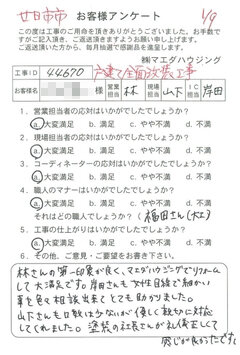 廿日市市 お客様アンケート 1/9
この度は工事のご用命を頂きありがとうございました。お手数で
すがご記入頂き、ご返送頂きますようお願い申し上げます。
ご返送頂いた方から、毎月抽選で感謝品を進呈します。
㈱マエダハウジング
工事ID 44670 戸建て全面改装工事
お客様名 様 営業担当 林 現場担当 山下 IC担当 岸田
1. 営業担当者の応対はいかがでしたでしょうか?
a. 大変満足 b. 満足 c. やや不満 d. 不満
2. 現場担当者の応対はいかがでしたでしょうか?
a. 大変満足 b. 満足 c. やや不満 d. 不満
3. コーディネーターの応対はいかがでしたでしょうか?
a. 大変満足 b. 満足 c. やや不満 d. 不満
4. 職人のマナーはいかがでしたでしょうか?
a. 大変満足 b. 満足 c. やや不満 d. 不満
それはどの職人でしょうか?(福田さん(大工))
5. 工事の仕上がりはいかがでしたでしょうか?
a. 大変満足 b. 満足 c. やや不満 d. 不満
6. その他、ご意見・ご要望をお書き下さい。
林さんの第一印象が良く、マエダハウジングでリフォーム
して大満足です。岸田さんも女性目線で細かい
事を色々相談出来てとても助かりました。
山下さんも口数は少ないが優しく親切に対応
してくれました。塗装の社長さんが礼儀正しくて
感じが良かったです。